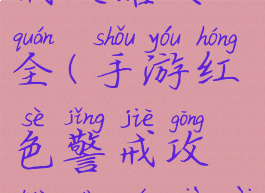 quán shǒu yóu hóng
全(手游红
sè jǐng jiè gōng
色警戒攻